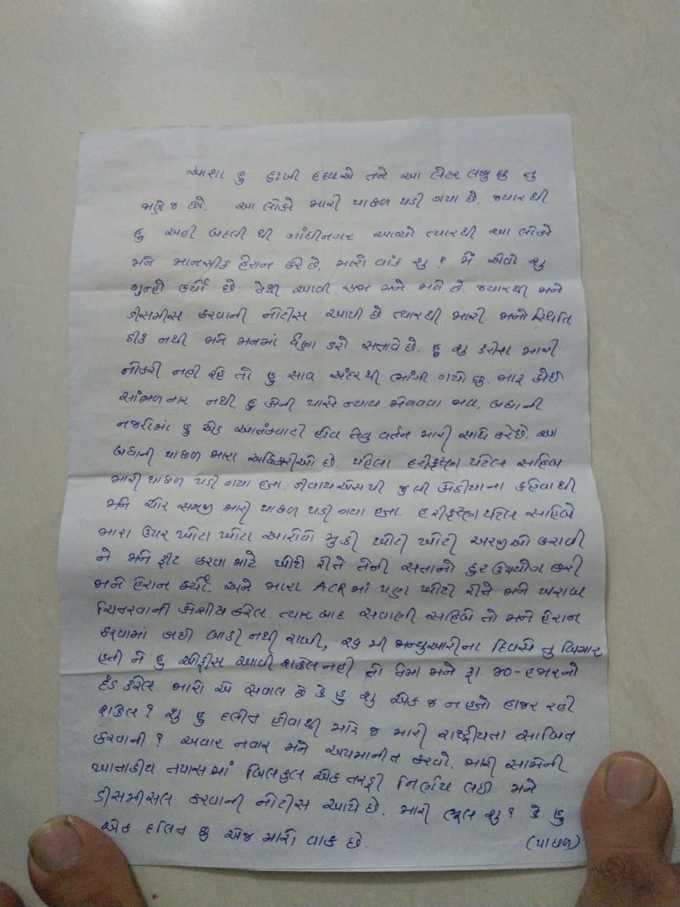 આશા હુ દુઃખી હૃદયે તને આ લેટર લખુ છુ તુ
આ લોકો મારી પાછળ પડી ગયા છે. જ્યારથી
હુ બદલી થી ગાંધીનગર આવ્યો ત્યારથી આ લોકો
મને માનસીક હેરાન કરે છે. મારો વાંક શુ? મે એવો શુ
ગુન્હો કર્યો છે. આવી સજા મને મળે છે. જ્યારથી મને
ડીસમીસ કરવાની નોટીસ આપી છે ત્યારથી મારી મનોસ્થિતિ
ઠીક નથી મને મનમાં સતાવે છે. હુ શુ કરીશ મારી
નોકરી નહી રહે તો હુ સાવ અંદરથી ભાંગી ગયો છુ. મારૂ કોઈ
સાંભળનાર નથી. હુ કોની પાસે ન્યાય મેળવવા જાવ. બધાની
નજરોમાં હુ એક આતંકવાદી હોવ તેવુ વર્તન મારી સાથે કરે છે. આ
બધાની પાછળ મારા અધિકારીઓ છે. પહેલા હરીકૃષ્ણ પટેલ સાહેબ
મારી પાછળ પડી ગયા હતા. કહેવાથી
મને ચોર સમજી મારી પાછળ પડી ગયા હતા. હરીકૃષ્ણ પટેલ સાહેબે
મારા ઉપર ખોટા ખોટા આરોપો મુકી ખોટી ખોટી અરજીઓ કરાવી
ને મને ફીટ કરવા માટે ખોટી રીતે તેની સત્તાનો દુરઉપયોગ કરી
મને હેરાન કર્યો. અને મારા ACR માં પણ ખોટી રીતે મને ખરાબ
ચિતરવાની કોશીષ કરેલ. ત્યાર બાદ સવાણી સાહેબે તો મને હેરાન
કરવામાં કંઈ બાકી નથી રાખી, ૨૬ મી જાન્યુઆરીના દિવસે તુ બિમાર
હતી ને હુ ઓફીસ આવી શકેલ નહી તો તેમા મને રૂા. હજારનો
દંડ કરેલ મારો એ સવાલ છે કે હુ શુ એક જ ન હતો હાજર રહી
શકેલ? શુ હુ દલીત હોવાથી મારે જ મારી રાષ્ટ્રીયતા સાબિત
કરવાની? અવાર નવાર મને અપમાનીત કરવો. મારી સામેની
ખાતાકીય તપાસમાં બિલકુલ એક તરફી નિર્ણય લઈ મને
ડીસમીસલ કરવાની નોટીસ આપે છે. મારી ભૂલ શુ? કે હુ
એક દલિત છુ એજ મારો વાંક છે. (પાછળ)